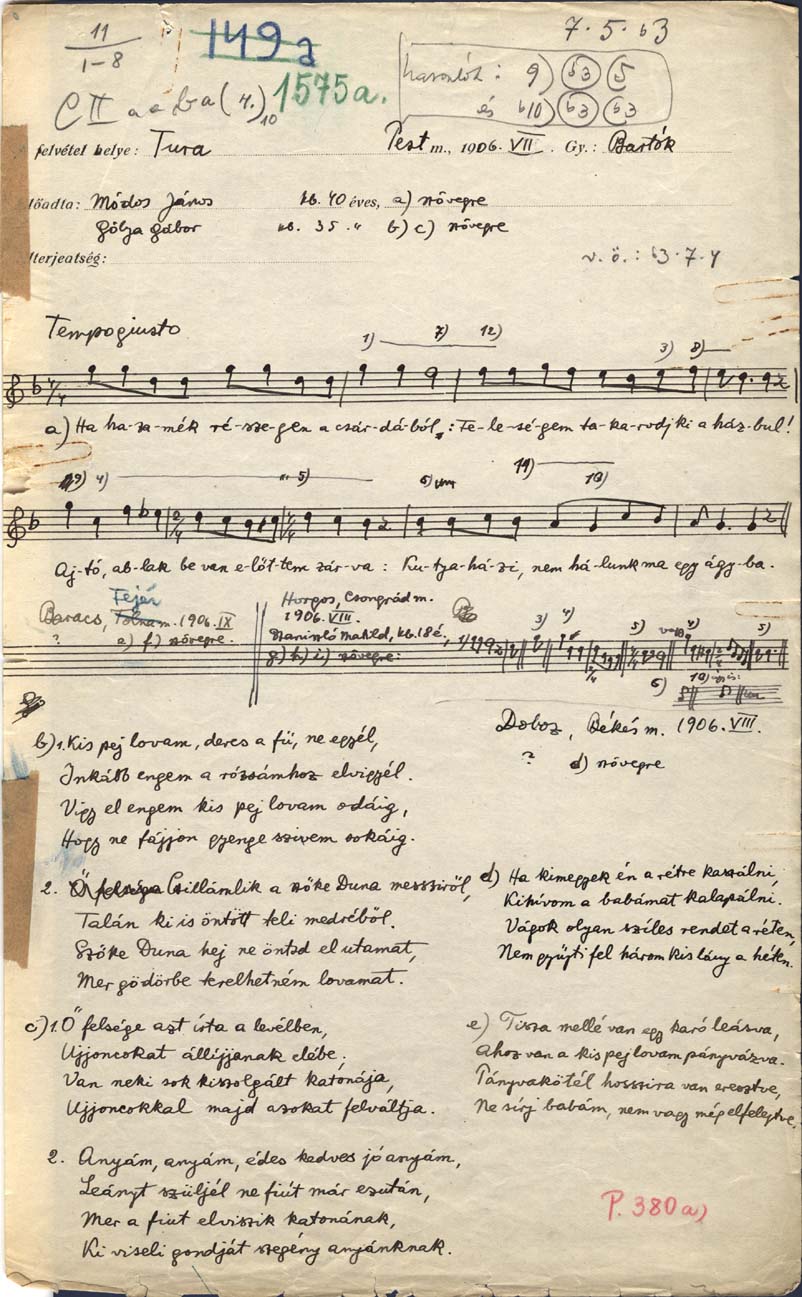 11
1-8
149a
7.5.b3
hasonlók: 9) b3 5
és b10) b3 b3
C II a a b a (4.)10
1575a.
felvétel helye: Tura Pest m., 1906. VII. Gy.: Bartók
lőadta: Módos János kb. 40 éves, a) szövegre
Gólya Gábor kb. 35 " b) c) szövegre
lterjeatség:
v.ö.: b3.7.4
Tempo giusto
1) 7) 12) 3) 8)
a) Ha ha-za-mék ré-sze-gen a csár-dá-ból,: Fe-le-sé-gem ta-ka-rodj ki a ház-bul!
9) 4) 5) 6) 11) 10)
Aj-tó, ab-lak be van e-lőt-tem zár-va: Ku-tya-há-zi, nem há-lunk ma egy ágy-ba.
Fejér
Baracs, Tolna m. 1906. IX
? e) f.) szövegre.
Horgos, Csongrád m.
1906. VIII.
kb. 18 é,
g) h) i) szövegre:
3) 4) 5) 4) 5)
6) 10)
Doboz, Békés m. 1906. VIII.
? d) szövegre
b) 1. Kis pej lovam, deres a fű, ne egyél,
Inkább engem a rózsámhoz elvigyél.
Vigy el engem kis pej lovam odáig,
Hogy ne fájjon gyenge szivem sokáig.
2. Ő felsége Csillámlik a szőke Duna messziről,
Talán ki is öntött teli medréből.
Szőke Duna hej ne öntsd el utamat,
Mer gödörbe terelhetném lovamat.
d) Ha kimegyek én a rétre kaszálni,
Kihívom a babámat kalapálni.
Vágok olyan széles rendet a réten,
Nem gyűjti fel három kis lány a héten.
c) 1. Ő felsége azt írta a levélben,
Ujjoncokat állíjjanak elébe;
Van neki sok kiszolgált katonája,
Ujjoncokkal majd azokat felváltja.
e) Tisza mellé van egy karó leásva,
Ahoz van a kis pej lovam pányvázva.
Pányvakötél hosszira van eresztve,
Ne sírj babám, nem vagy még elfelejtve.
2. Anyám, anyám, édes kedves jó anyám,
Leányt szüljél ne fiút már ezután,
Mer a fiut elviszik katonának,
Ki viseli gondját szegény anyjánknak.
P. 380a)